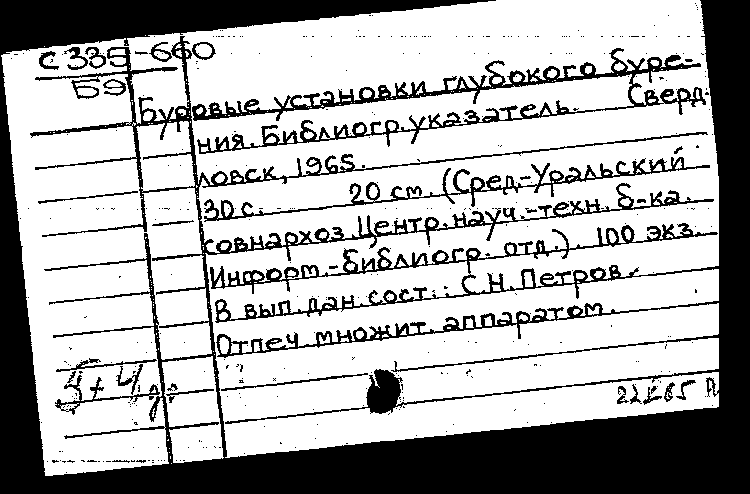 С 335-660
59
Буровые установки глубокого буре-
ния. Библиогр. указатель. Сверд-
ловск, 1965.
30 с. 20 см. (Сред.-Уральский
совнархоз. Центр. науч.-техн. б-ка.
Информ.-библиогр. отд.). 100 экз.
В вып. дан. сост.: С.Н. Петров.
Отпеч. множит. аппаратом.
5+4